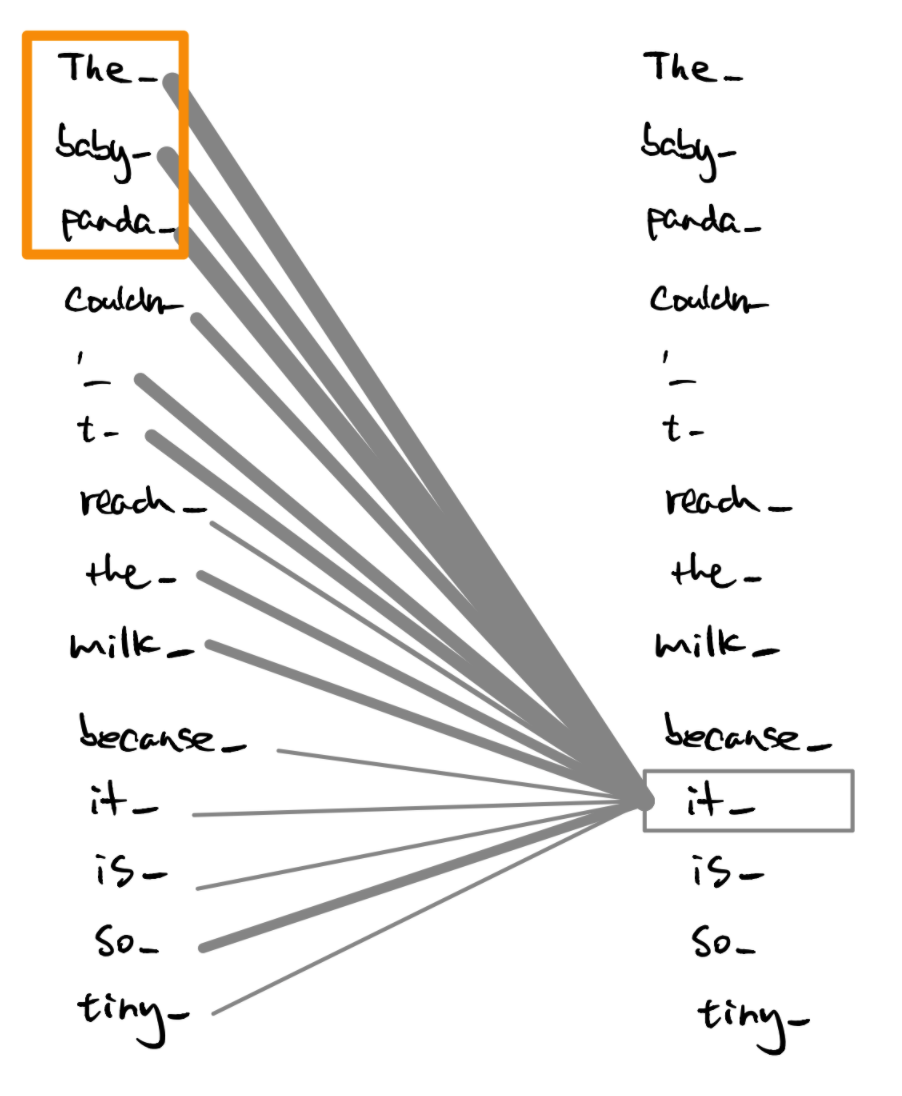 The_
baby_
panda_
Couldn_
'_
t_
reach_
the_
milk_
because_
it_
is_
so_
tiny_
The_
baby_
panda_
Couldn_
'_
t_
reach_
the_
milk_
because_
it_
is_
so_
tiny_